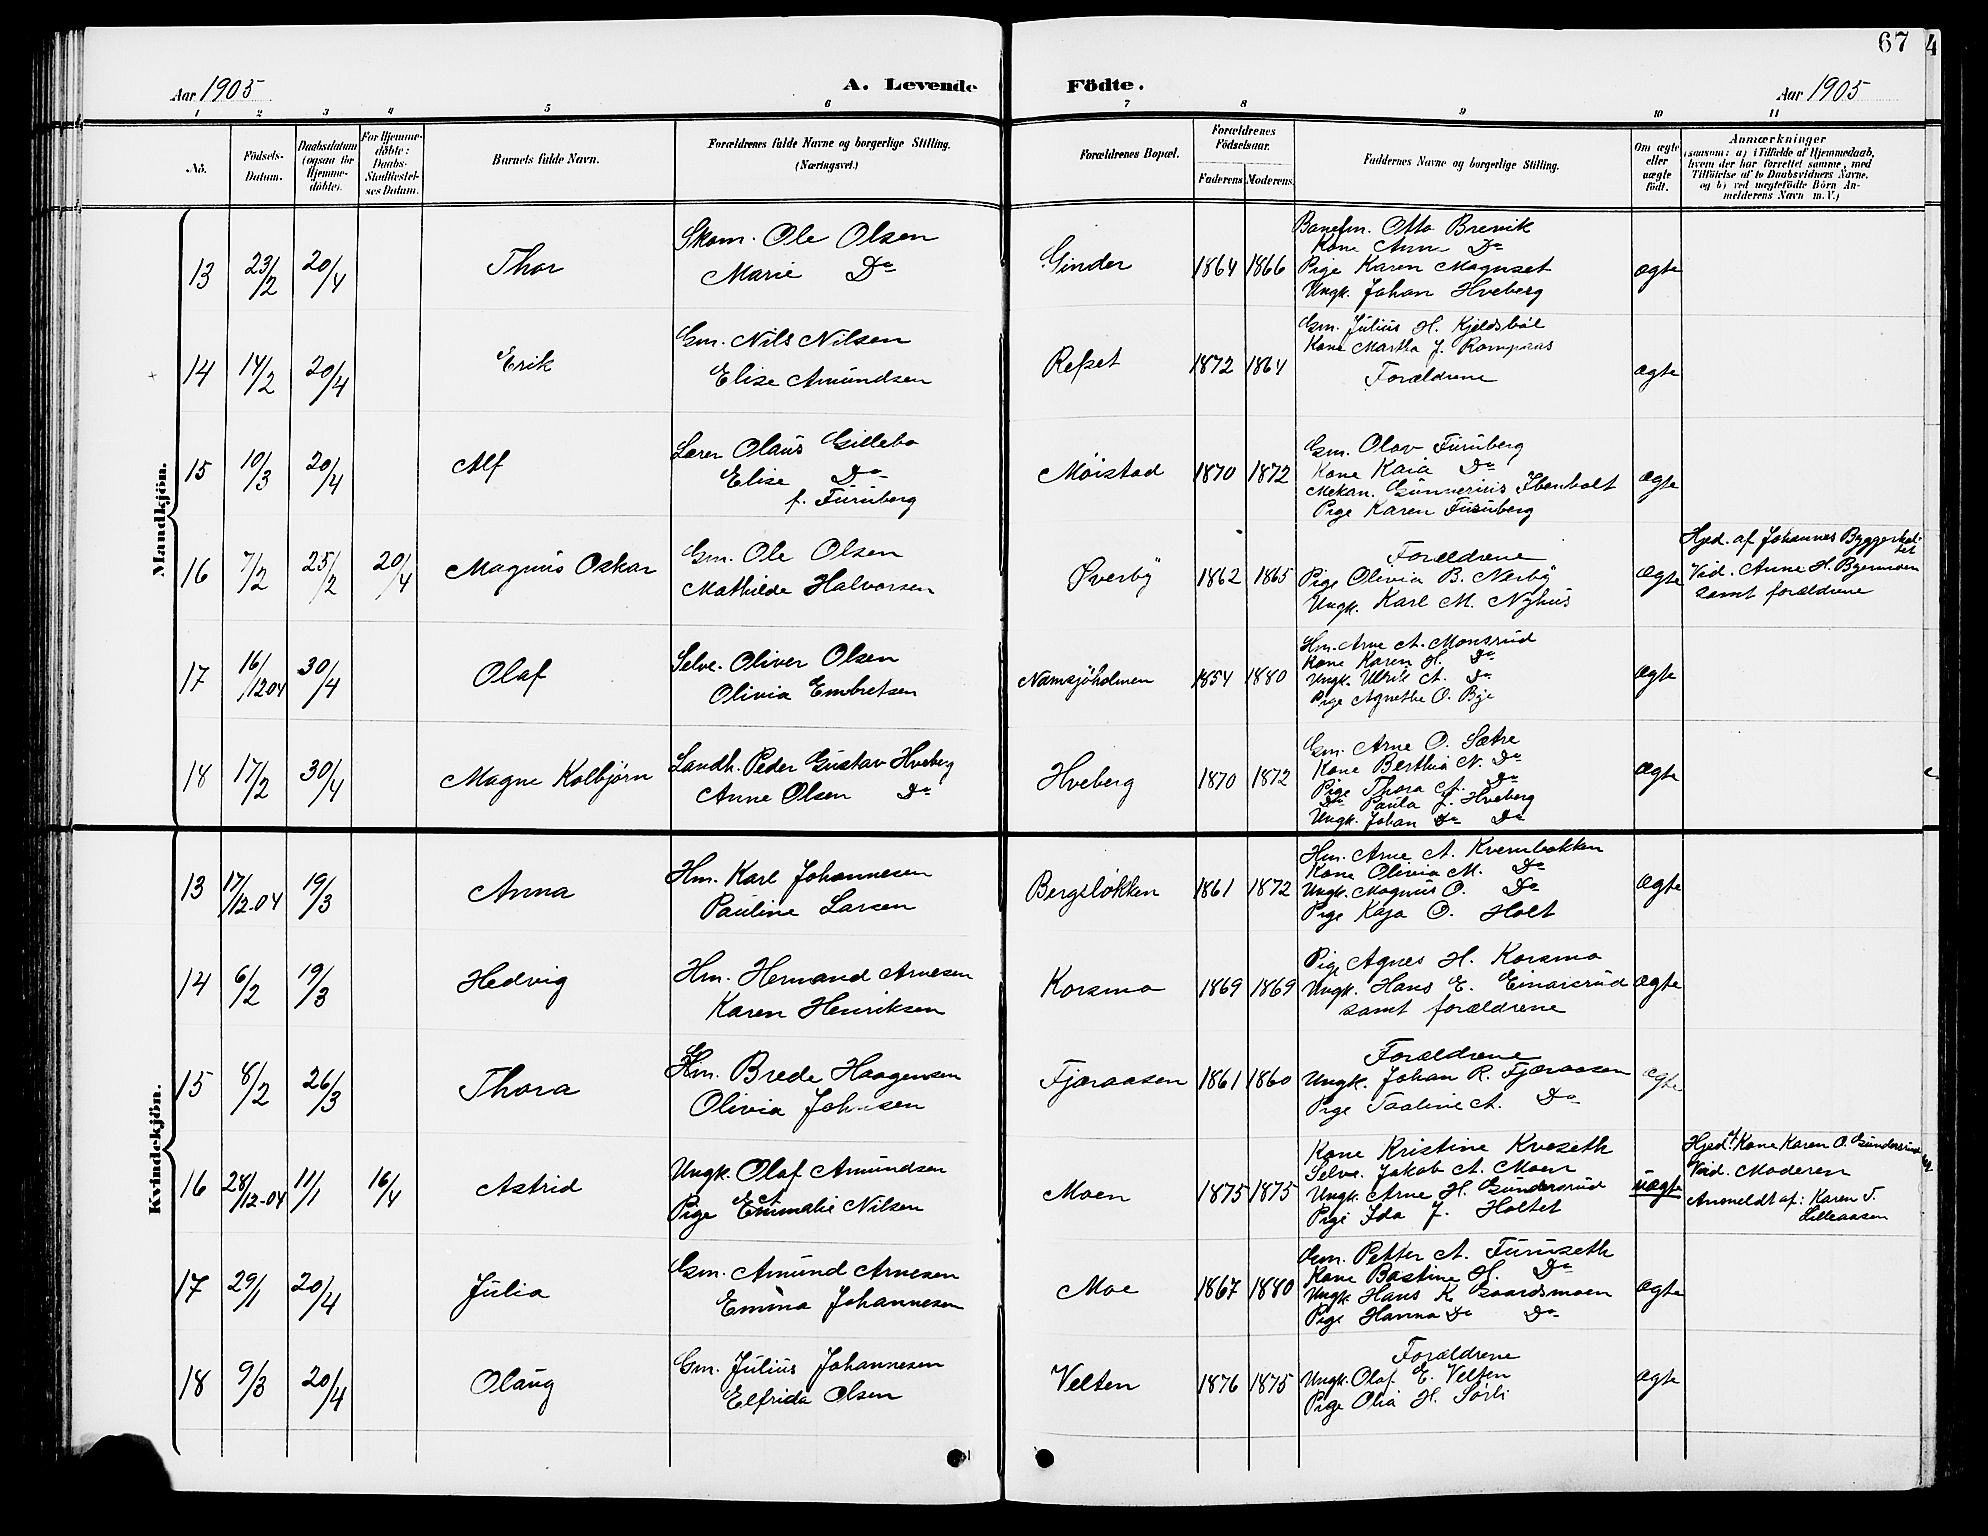 67
Aar 1905 A. Levende Fødte. Aar 1905
1 2 3 4 5 6 7 8 9 10 11
No.
Födsels-Datum.
Daabsdatum (ogsaa for Hjemme-döbte).
For Hjemme-döbte: Daabs-Stadfæstel-ses Datum.
Barnets fulde Navn.
Forældrenes fulde Navne og borgerlige Stilling. (Næringsvei.)
Forældrenes Bopæl.
Forældrenes Födselsaar.
Faderens Moderens
Faddernes Navne og borgerlige Stilling.
Om ægte eller uægte födt.
Anmærkninger
(saasom: a) i Tilfælde af Hjemmedaab, hvem der har forrettet samme, med Tilföielse af to Daabsvidners Navne, og b) ved uægtefödte Börn Anmelderens Navn m. V.)
Mandkjön.
13 23/2 20/4 Thor
Skom. Ole Olsen
Marie Do
Ginder 1864 1866
Banefm. Otto Brevik
Kone Anne Do
Pige Karen Magnset
Ungk. Johan Hveberg
ægte
14 14/2 20/4 Erik
Gm. Nils Nilsen
Elise Amundsen
Refset 1872 1864
Gm. Julius H. Kjeldsböl
Kone Martha J. Rompaas
Forældrene
ægte
15 10/3 20/4 Alf
Lærer Olaus Gillebo
Elise Do
f. Furuberg
Möistad 1870 1872
Gm. Olav Furuberg
Kone Kaia Do
Mekan. Gunnerius Ibenholt
Pige Karen Furuberg
ægte
16 7/2 25/2 20/4 Magnus Oskar
Gm. Ole Olsen
Mathilde Halvorsen
Øverby 1862 1865
Forældrene
Pige Olivia B. Nerby
Ungk. Karl M. Nyhus
ægte
Hjed. af Johannes
Vid. Anne H. Bjermoen
samt forældrene
17 16/12 04 30/4 Olaf
Selve. Oliver Olsen
Olivia Embretsen
Namsjöholmen 1854 1880
Hm. Arne A. Monsrud
Kone Karen H. Do
Ungk. Ulrik A. Do
Pige Agnethe O. Bye
ægte
18 17/2 30/4 Magne Kolbjørn
Landh. Peder Gustav Hveberg
Anne Olsen Do
Hveberg 1870 1872
Gm. Arne O. Sætre
Kone Berthia N. Do
Pige Thora A. Do
Do Paula J. Hveberg
Ungk. Johan Do Do
ægte
Kvindekjön.
13 17/12-04 19/3 Anna
Hm. Karl Johannesen
Pauline Larsen
Bergslökken 1861 1872
Hm. Arne A. Kvernbakken
Kone Olivia M. Do
Ungk. Magnus O. Do
Pige Kaja O. Holt
ægte
14 6/2 19/3 Hedvig
Hm. Hermand Arnesen
Karen Henriksen
Korsmo 1869 1869
Pige Agnes H. Korsmo
Ungk. Hans E. Einarsrud
samt forældrene
ægte
15 8/2 26/3 Thora
Gm. Brede Haagensen
Olivia Johnsen
Fjæraasen 1861 1860
Forældrene
Ungk. Johan R. Fjæraasen
Pige Taaline A. Do
ægte
16 28/12-04 11/1 16/4 Astrid
Ungk. Olaf Amundsen
Pige Emmalie Nilsen
Moen 1875 1875
Kone Kristine Kveseth
Selve. Jakob A. Moen
Ungk. Arne H. Gundersrud
Pige Ida J. Holtet
uægte
Hjed. af Kone Karen O. Gundersrud
Vid. Moderen
Anmeldt af: Karen T.
Lilleaasen
17 29/1 20/4 Julia
Gm. Amund Arnesen
Emma Johannesen
Moe 1867 1880
Gm. Petter A. Furuseth
Kone Bastine H. Do
Ungk. Hans K. Gaardsmoen
Pige Hanna Do Do
ægte
18 9/3 20/4 Olaug
Gm. Julius Johannesen
Elfrida Olsen
Velten 1876 1875
Forældrene
Ungk. Olaf E. Velten
Pige Olia H. Sörli
ægte